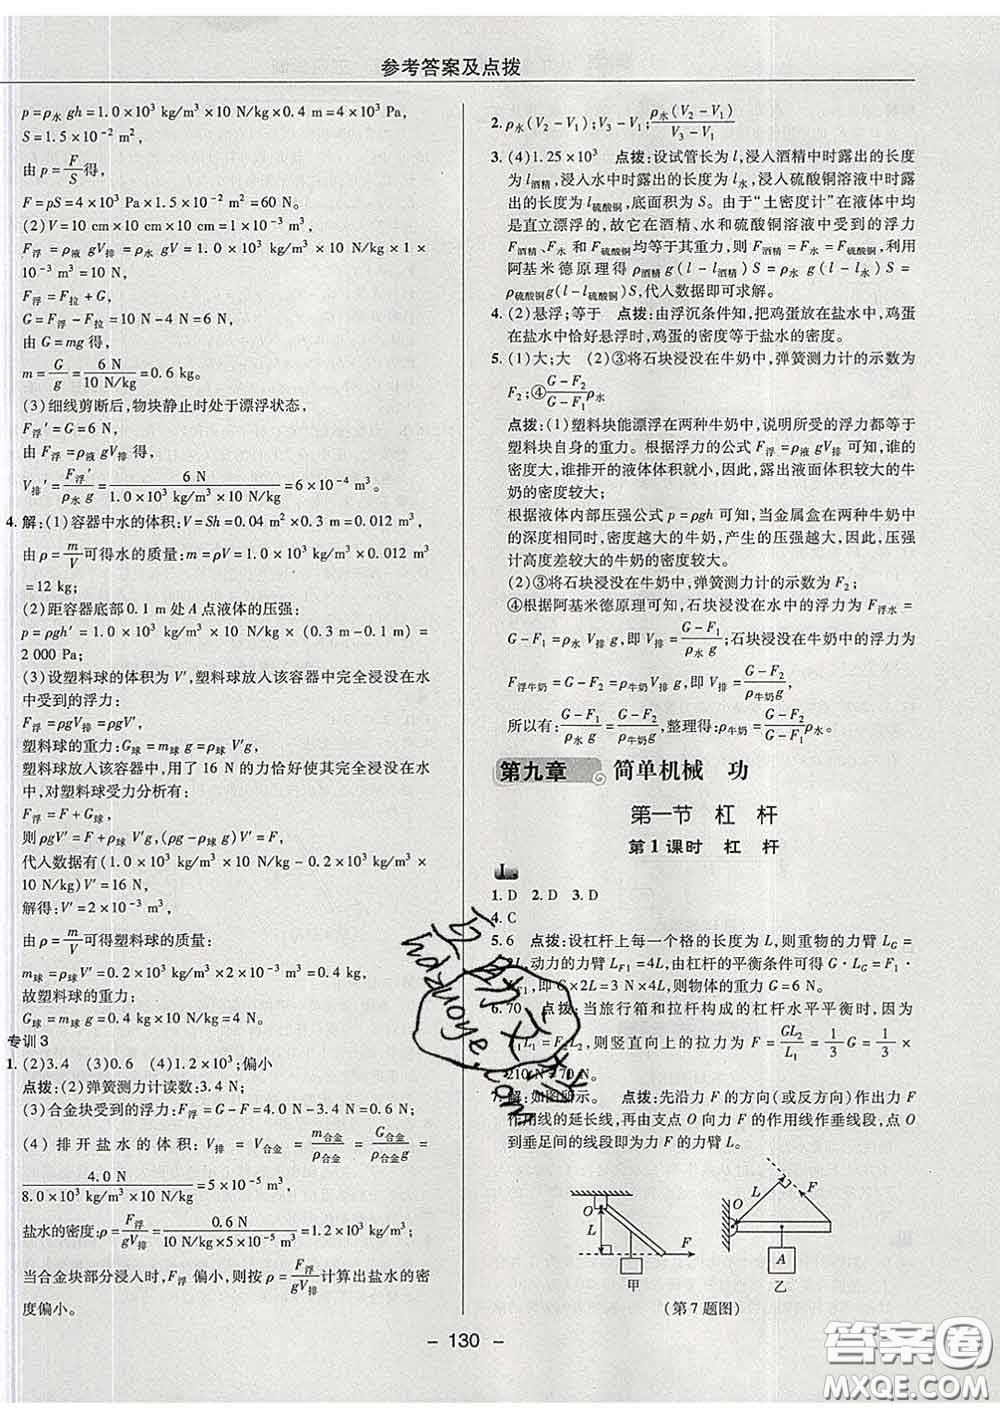 参考答案及点拨
p=ρ水 gh=1.0×10³ kg/m³×10 N/kg×0.4 m=4×10³ Pa,
S=1.5×10⁻² m²,
由 p=F/S得,
F=pS=4×10³ Pa×1.5×10⁻² m²=60 N。
(2)V=10 cm×10 cm×10 cm=1×10⁻³ m³,
F浮=ρ液 gV排=ρ水 gV=1.0×10³ kg/m³×10 N/kg×1×
10⁻³ m³=10 N,
F浮=F拉+G,
G=F浮-F拉=10 N-4 N=6 N,
由 G=mg 得,
m=G/g=6 N/10 N/kg=0.6 kg。
(3)细线剪断后,物块静止时处于漂浮状态,
F浮′=G=6 N,
由 F浮=ρ液 gV排 得,
V排′=F浮′/ρ水 g=6 N/1.0×10³ kg/m³×10 N/kg=6×10⁻⁴ m³。
4. 解:(1)容器中水的体积:V=Sh=0.04 m²×0.3 m=0.012 m³,
由 ρ=m/V可得水的质量:m=ρV=1.0×10³ kg/m³×0.012 m³
=12 kg;
(2)距容器底部0.1 m处A点液体的压强:
p=ρgh′=1.0×10³ kg/m³×10 N/kg×(0.3 m-0.1 m)=
2 000 Pa;
(3)设塑料球的体积为 V′,塑料球放入该容器中完全浸没在水
中受到的浮力:
F浮=ρgV排=ρgV′,
塑料球的重力:G球=m球 g=ρ球 V′g,
塑料球放入该容器中,用了 16 N 的力恰好使其完全浸没在水
中,对塑料球受力分析有:
F浮=F+G球,
则 ρgV′=F+ρ球 V′g,(ρg-ρ球 g)V′=F,
代入数据有(1.0×10³ kg/m³×10 N/kg-0.2×10³ kg/m³×10
N/kg)V′=16 N,
解得:V′=2×10⁻³ m³,
由 ρ=m/V可得塑料球的质量:
m球=ρ球 V′=0.2×10³ kg/m³×2×10⁻³ m³=0.4 kg,
故塑料球的重力:
G球=m球 g=0.4 kg×10 N/kg=4 N。
专训3
1. (2)3.4 (3)0.6 (4)1.2×10³;偏小
点拨:(2)弹簧测力计读数:3.4 N;
(3)合金块受到的浮力:F浮=G-F=4.0 N-3.4 N=0.6 N;
(4)排开盐水的体积:V排=V合金=m合金/ρ合金=G合金/ρ合金g=
4.0 N/8.0×10³ kg/m³×10 N/kg=5×10⁻⁵ m³,
盐水的密度:ρ=F浮/gV排=0.6 N/10 N/kg×5×10⁻⁵ m³=1.2×10³ kg/m³。
当合金块部分浸入时,F浮 偏小,则按 ρ=F浮/gV排计算出盐水的密
度偏小。
2. ρ水(V2-V1);V3-V1;ρ水(V2-V1)/V3-V1
3. (4)1.25×10³ 点拨:设试管长为 l,浸入酒精中时露出的长度
为 l酒精,浸入水中时露出的长度 l水,浸入硫酸铜溶液中时露
出的长度 l硫酸铜,底面积为 S。由于“土密度计”在液体中均
是直立漂浮的,故它在酒精、水和硫酸铜溶液中受到的浮力
F酒精、F水 和 F硫酸铜均等于其重力,则 F酒精=F水=F硫酸铜,利用
阿基米德原理得 ρ酒精 g(l-l酒精)S=ρ水 g(l-l水)S=
ρ硫酸铜g(l-l硫酸铜)S,代入数据即可求解。
4. (2)悬浮;等于 点拨:由浮沉条件知,把鸡蛋放在盐水中,鸡蛋
在盐水中恰好悬浮时,鸡蛋的密度等于盐水的密度。
5. (1)大;大 (2)③将石块浸没在牛奶中,弹簧测力计的示数为
F2;④G-F2/G-F1ρ水
点拨:(1)塑料块能漂浮在两种牛奶中,说明所受的浮力都等于
塑料块自身的重力。根据浮力的公式 F浮=ρ液 gV排 可知,谁的
密度大,谁排开的液体体积就小,因此,露出液面体积较大的牛
奶的密度较大;
根据液体内部压强公式 p=ρgh 可知,当金属盒在两种牛奶中
的深度相同时,密度越大的牛奶,产生的压强越大,因此,压强
计高度差较大的牛奶的密度较大。
(2)③将石块浸没在牛奶中,弹簧测力计的示数为 F2;
④根据阿基米德原理可知,石块浸没在水中的浮力为 F浮水=
G-F1=ρ水 V排 g,即 V排=G-F1/ρ水 g;石块浸没在牛奶中的浮力为
F浮牛奶=G-F2=ρ牛奶V排 g,即 V排=G-F2/ρ牛奶g,
所以有:G-F1/ρ水 g=G-F2/ρ牛奶g,整理得:ρ牛奶=G-F2/G-F1ρ水。
第九章 简单机械 功
第一节 杠 杆
第1课时 杠 杆
1. D 2. D 3. D
4. C
5. 6 点拨:设杠杆上每一个格的长度为 L,则重物的力臂 LG=
2L,动力的力臂 LF1=4L,由杠杆的平衡条件可得 G·LG=F1·
LF1,即 G×2L=3 N×4L,则物体的重力 G=6 N。
6. 70 点拨:当旅行箱和拉杆构成的杠杆水平平衡时,因为
F1L1=F2L2,则竖直向上的拉力为 F=GL2/L1=1/3G=1/3×
210 N=70 N。
7. 解:如图所示。 点拨:先沿力 F 的方向(或反方向)作出力 F
作用线的延长线,再由支点 O 向力 F 的作用线作垂线段,点 O
到垂足间的线段即为力 F 的力臂 L。
O L F 甲
O L F A 乙
(第7题图)
- 130 -
答案圈
MXQE.COM